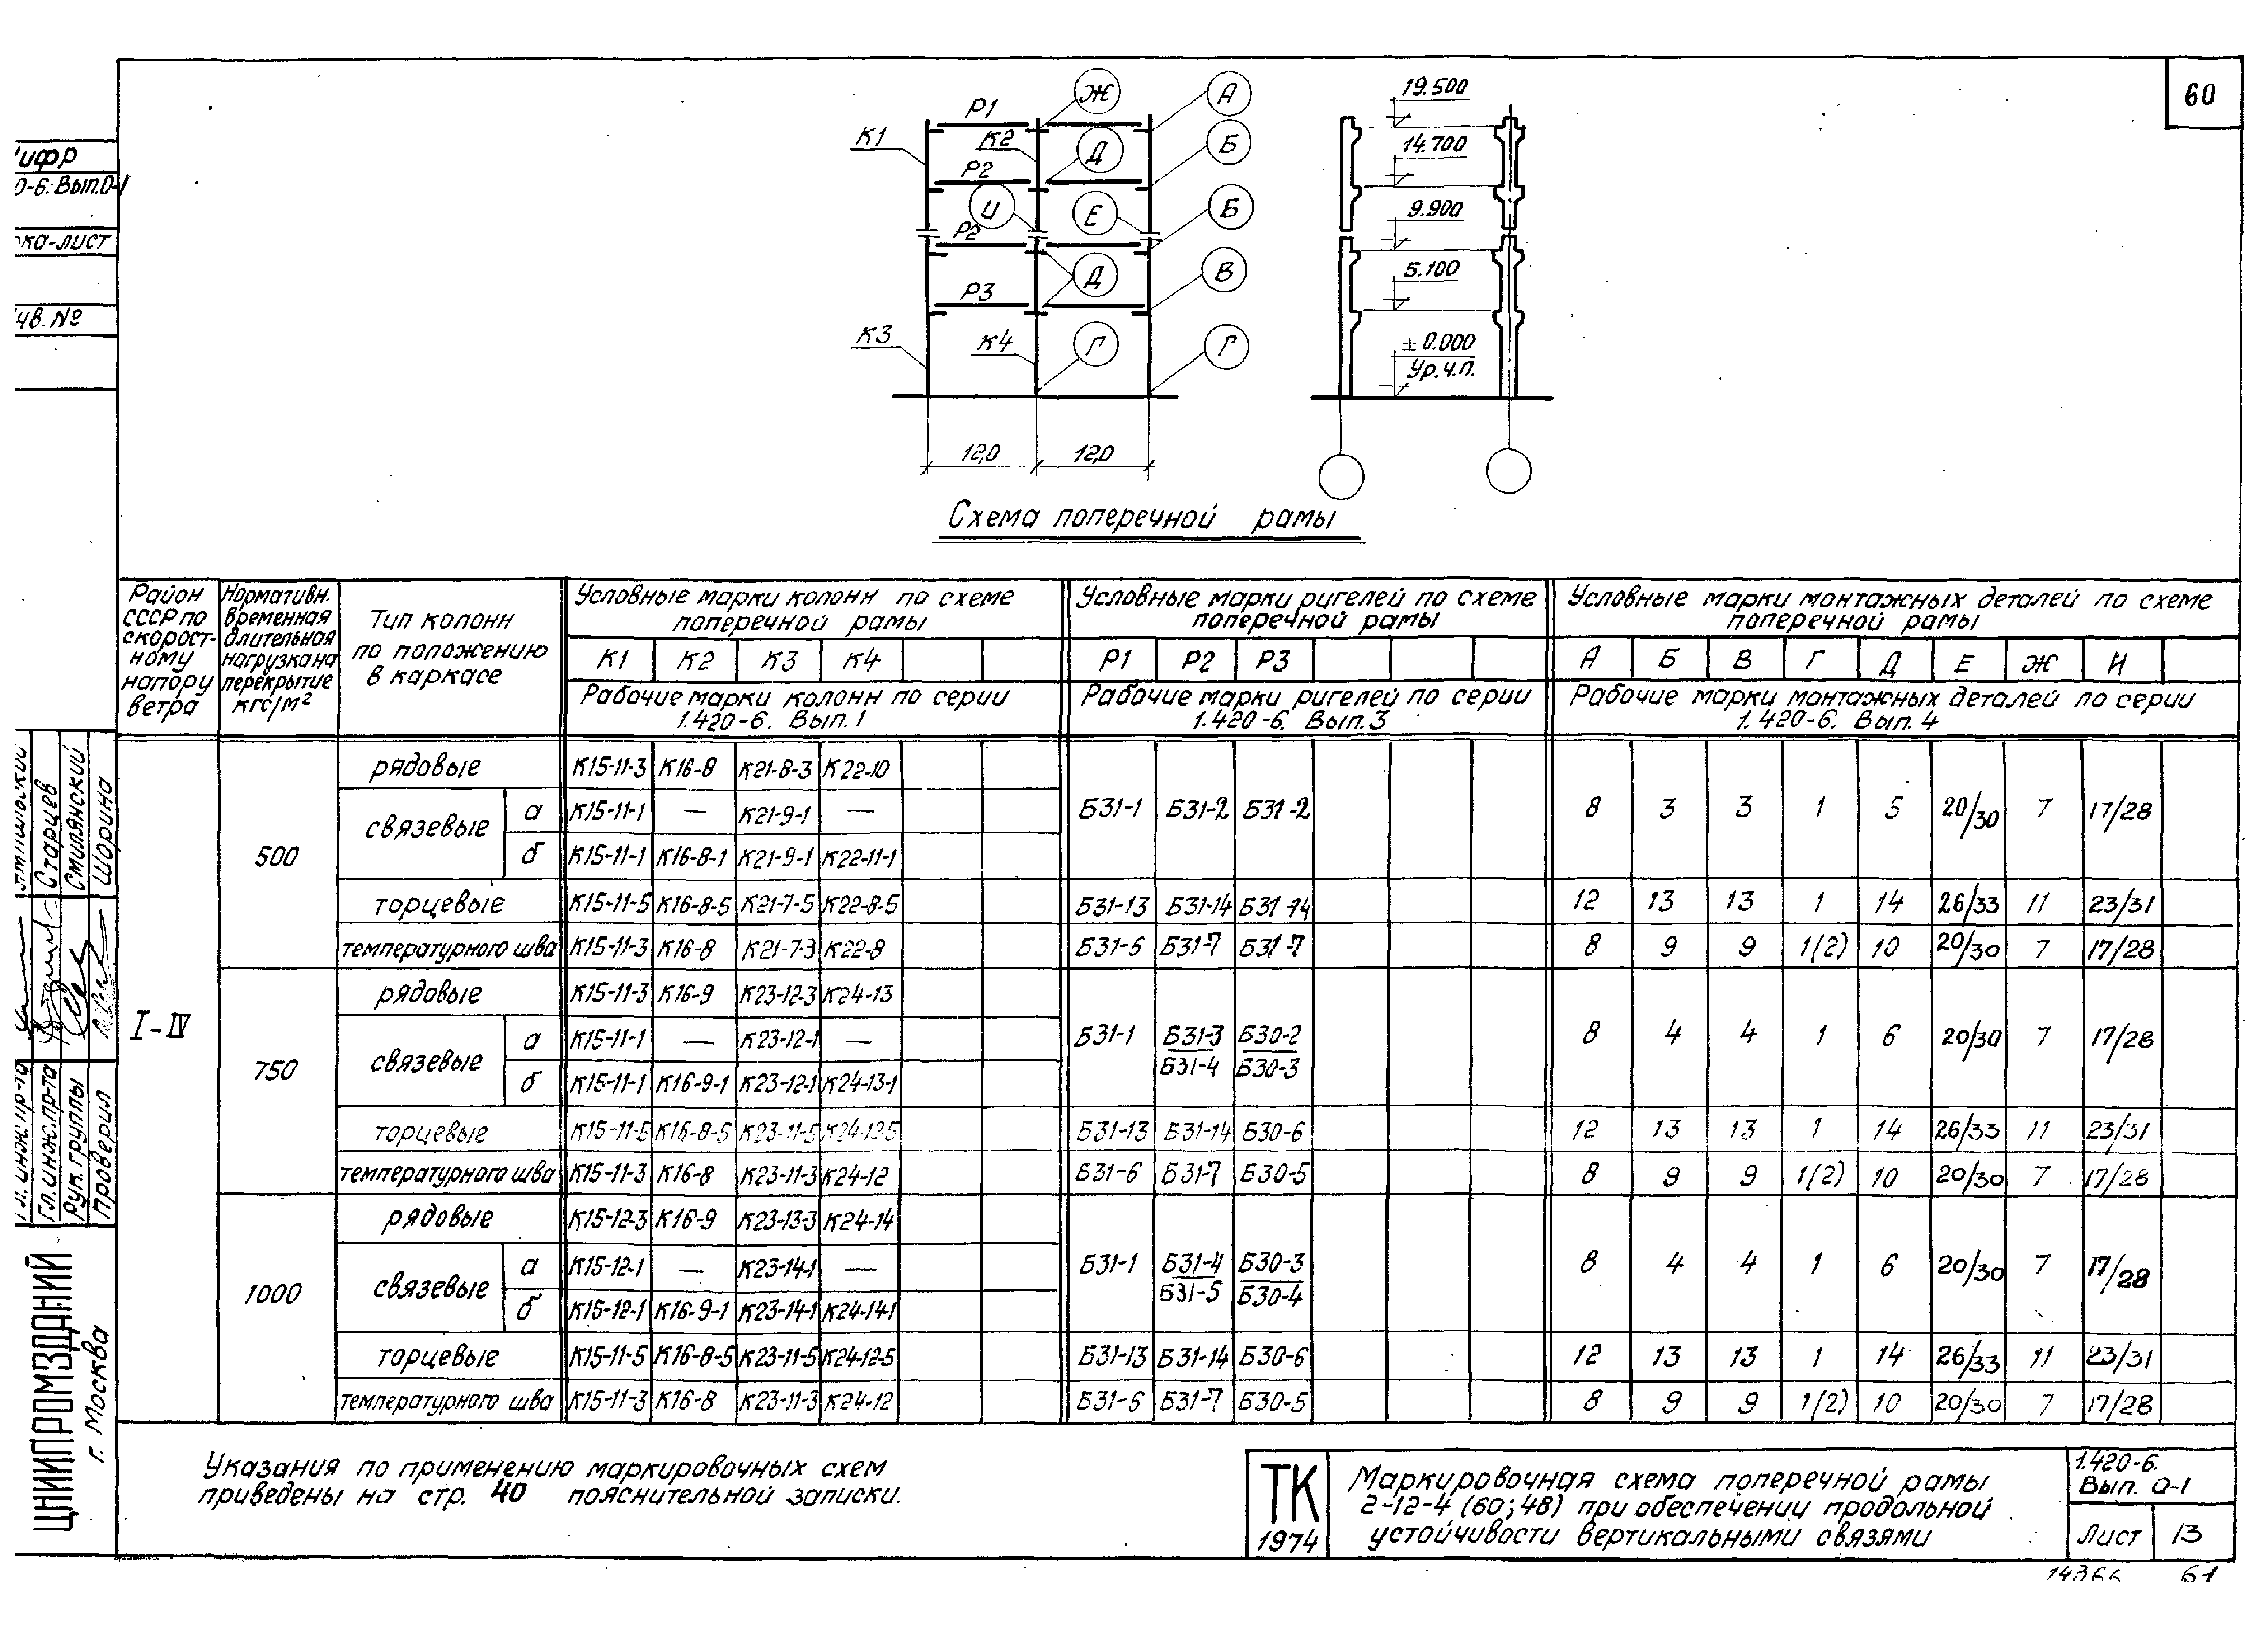 60
Р1
Ж
А
К1
К2
Д
Б
Р2
И
Е
Б
Р2
Д
В
Р3
К3
К4
Г
Г
12,0
12,0
19.500
14.700
9.900
5.100
± 0.000
Ур.ч.п.
Схема поперечной рамы
0-6. Вып.0-1
Район СССР по скорост-ному напору ветра
Нормативн. временная длительная нагрузка на перекрытие кгс/м²
Тип колонн по положению в каркасе
Условные марки колонн по схеме поперечной рамы
Условные марки ригелей по схеме поперечной рамы
Условные марки монтажных деталей по схеме поперечной рамы
К1 К2 К3 К4 Р1 Р2 Р3 А Б В Г Д Е Ж И
Рабочие марки колонн по серии 1.420-6. Вып.1
Рабочие марки ригелей по серии 1.420-6. Вып.3
Рабочие марки монтажных деталей по серии 1.420-6. Вып.4
I-IV
500
рядовые К15-11-3 К16-8 К21-8-3 К22-10
связевые
а К15-11-1 — К21-9-1 —
Б31-1 Б31-2 Б31-2 8 3 3 1 5 20/30 7 17/28
б К15-11-1 К16-8-1 К21-9-1 К22-11-1
торцевые К15-11-5 К16-8-5 К21-7-5 К22-8-5 Б31-13 Б31-14 Б31-14 12 13 13 1 14 26/33 11 23/31
температурного шва К15-11-3 К16-8 К21-7-3 К22-8 Б31-6 Б31-7 Б31-7 8 9 9 1(2) 10 20/30 7 17/28
750
рядовые К15-11-3 К16-9 К23-12-3 К24-13
связевые
а К15-11-1 — К23-12-1 —
Б31-1 Б31-3 Б30-2 8 4 4 1 6 20/30 7 17/28
Б31-4 Б30-3
б К15-11-1 К16-9-1 К23-12-1 К24-13-1
торцевые К15-11-5 К16-8-5 К23-11-5 К24-12-5 Б31-13 Б31-14 Б30-6 12 13 13 1 14 26/33 11 23/31
температурного шва К15-11-3 К16-8 К23-11-3 К24-12 Б31-6 Б31-7 Б30-5 8 9 9 1(2) 10 20/30 7 17/28
1000
рядовые К15-12-3 К16-9 К23-13-3 К24-14
связевые
а К15-12-1 — К23-14-1 —
Б31-1 Б31-4 Б30-3 8 4 4 1 6 20/30 7 17/28
Б31-5 Б30-4
б К15-12-1 К16-9-1 К23-14-1 К24-14-1
торцевые К15-11-5 К16-8-5 К23-11-5 К24-12-5 Б31-13 Б31-14 Б30-6 12 13 13 1 14 26/33 11 23/31
температурного шва К15-11-3 К16-8 К23-11-3 К24-12 Б31-6 Б31-7 Б30-5 8 9 9 1(2) 10 20/30 7 17/28
Указания по применению маркировочных схем
приведены на стр. 40 пояснительной записки.
ТК
1974
Маркировочная схема поперечной рамы
2-12-4 (60; 48) при обеспечении продольной
устойчивости вертикальными связями
1.420-6.
Вып. 0-1
Лист 13
14366 61
Старцев
Смилянский
Шорина
Гл.инж.пр-та
Рук. группы
Проверил
ЦНИИПРОМЗДАНИЙ
г. Москва